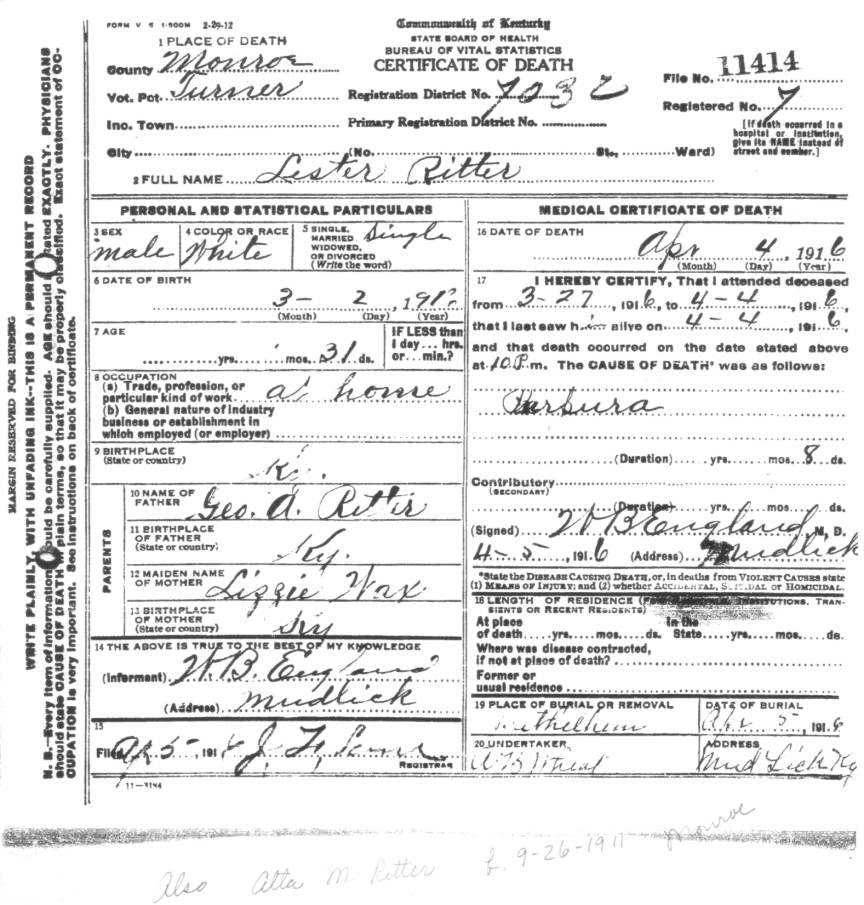 FORM V S 1-500M 2-29-12
Commonwealth of Kentucky
STATE BOARD OF HEALTH
BUREAU OF VITAL STATISTICS
CERTIFICATE OF DEATH
1 PLACE OF DEATH
County Monroe
Vot. Pct. Turner
Inc. Town
City (No. St., Ward)
Registration District No. 7232
Primary Registration District No.
File No. 11414
Registered No. 7
[If death occurred in a
hospital or institution,
give its NAME instead of
street and number.]
2 FULL NAME Lester Ritter
PERSONAL AND STATISTICAL PARTICULARS
3 SEX
male
4 COLOR OR RACE
White
5 SINGLE, MARRIED, WIDOWED, OR DIVORCED (Write the word)
Single
6 DATE OF BIRTH
3- 2, 191
(Month) (Day) (Year)
7 AGE
yrs. mos. 31 ds.
IF LESS than
1 day... hrs.
or... min.?
8 OCCUPATION
(a) Trade, profession, or
particular kind of work at home
(b) General nature of industry
business or establishment in
which employed (or employer)
9 BIRTHPLACE
(State or country)
Ky.
PARENTS
10 NAME OF FATHER
Geo. A. Ritter
11 BIRTHPLACE OF FATHER (State or country)
Ky.
12 MAIDEN NAME OF MOTHER
Lizzie Wax
13 BIRTHPLACE OF MOTHER (State or country)
Ky
14 THE ABOVE IS TRUE TO THE BEST OF MY KNOWLEDGE
(Informant) W B. England
(Address) Mudlick
15
Filed Ap 5- 191 J. F.
REGISTRAR
11-3144
MEDICAL CERTIFICATE OF DEATH
16 DATE OF DEATH
Apr 4, 1916
(Month) (Day) (Year)
17 I HEREBY CERTIFY, That I attended deceased
from 3-27, 1916, to 4-4, 1916,
that I last saw him alive on 4-4, 1916
and that death occurred on the date stated above
at 10 P.m. The CAUSE OF DEATH* was as follows:
Purpura
(Duration) yrs. mos. 8 ds.
Contributory
(SECONDARY)
(Duration) yrs. mos. ds.
(Signed) W B England, M. D.
4-5, 1916 (Address) Mudlick
*State the DISEASE CAUSING DEATH, or, in deaths from VIOLENT CAUSES state
(1) MEANS OF INJURY; and (2) whether ACCIDENTAL, SUICIDAL OR HOMICIDAL.
18 LENGTH OF RESIDENCE (FOR INSTITUTIONS, TRAN-
SIENTS OR RECENT RESIDENTS)
At place In the
of death yrs. mos. ds. State yrs. mos. ds.
Where was disease contracted,
if not at place of death?
Former or
usual residence
19 PLACE OF BURIAL OR REMOVAL
Bethelhem
DATE OF BURIAL
Apr 5, 1916
20 UNDERTAKER
ADDRESS
Mud Lick Ky
MARGIN RESERVED FOR BINDING
WRITE PLAINLY, WITH UNFADING INK--THIS IS A PERMANENT RECORD
N. B.--Every item of information should be carefully supplied. AGE should be stated EXACTLY. PHYSICIANS
should state CAUSE OF DEATH in plain terms, so that it may be properly classified. Exact statement of OC-
CUPATION is very important. See instructions on back of certificate.
Also Alta M. Ritter b. 9-26-1911 Monroe